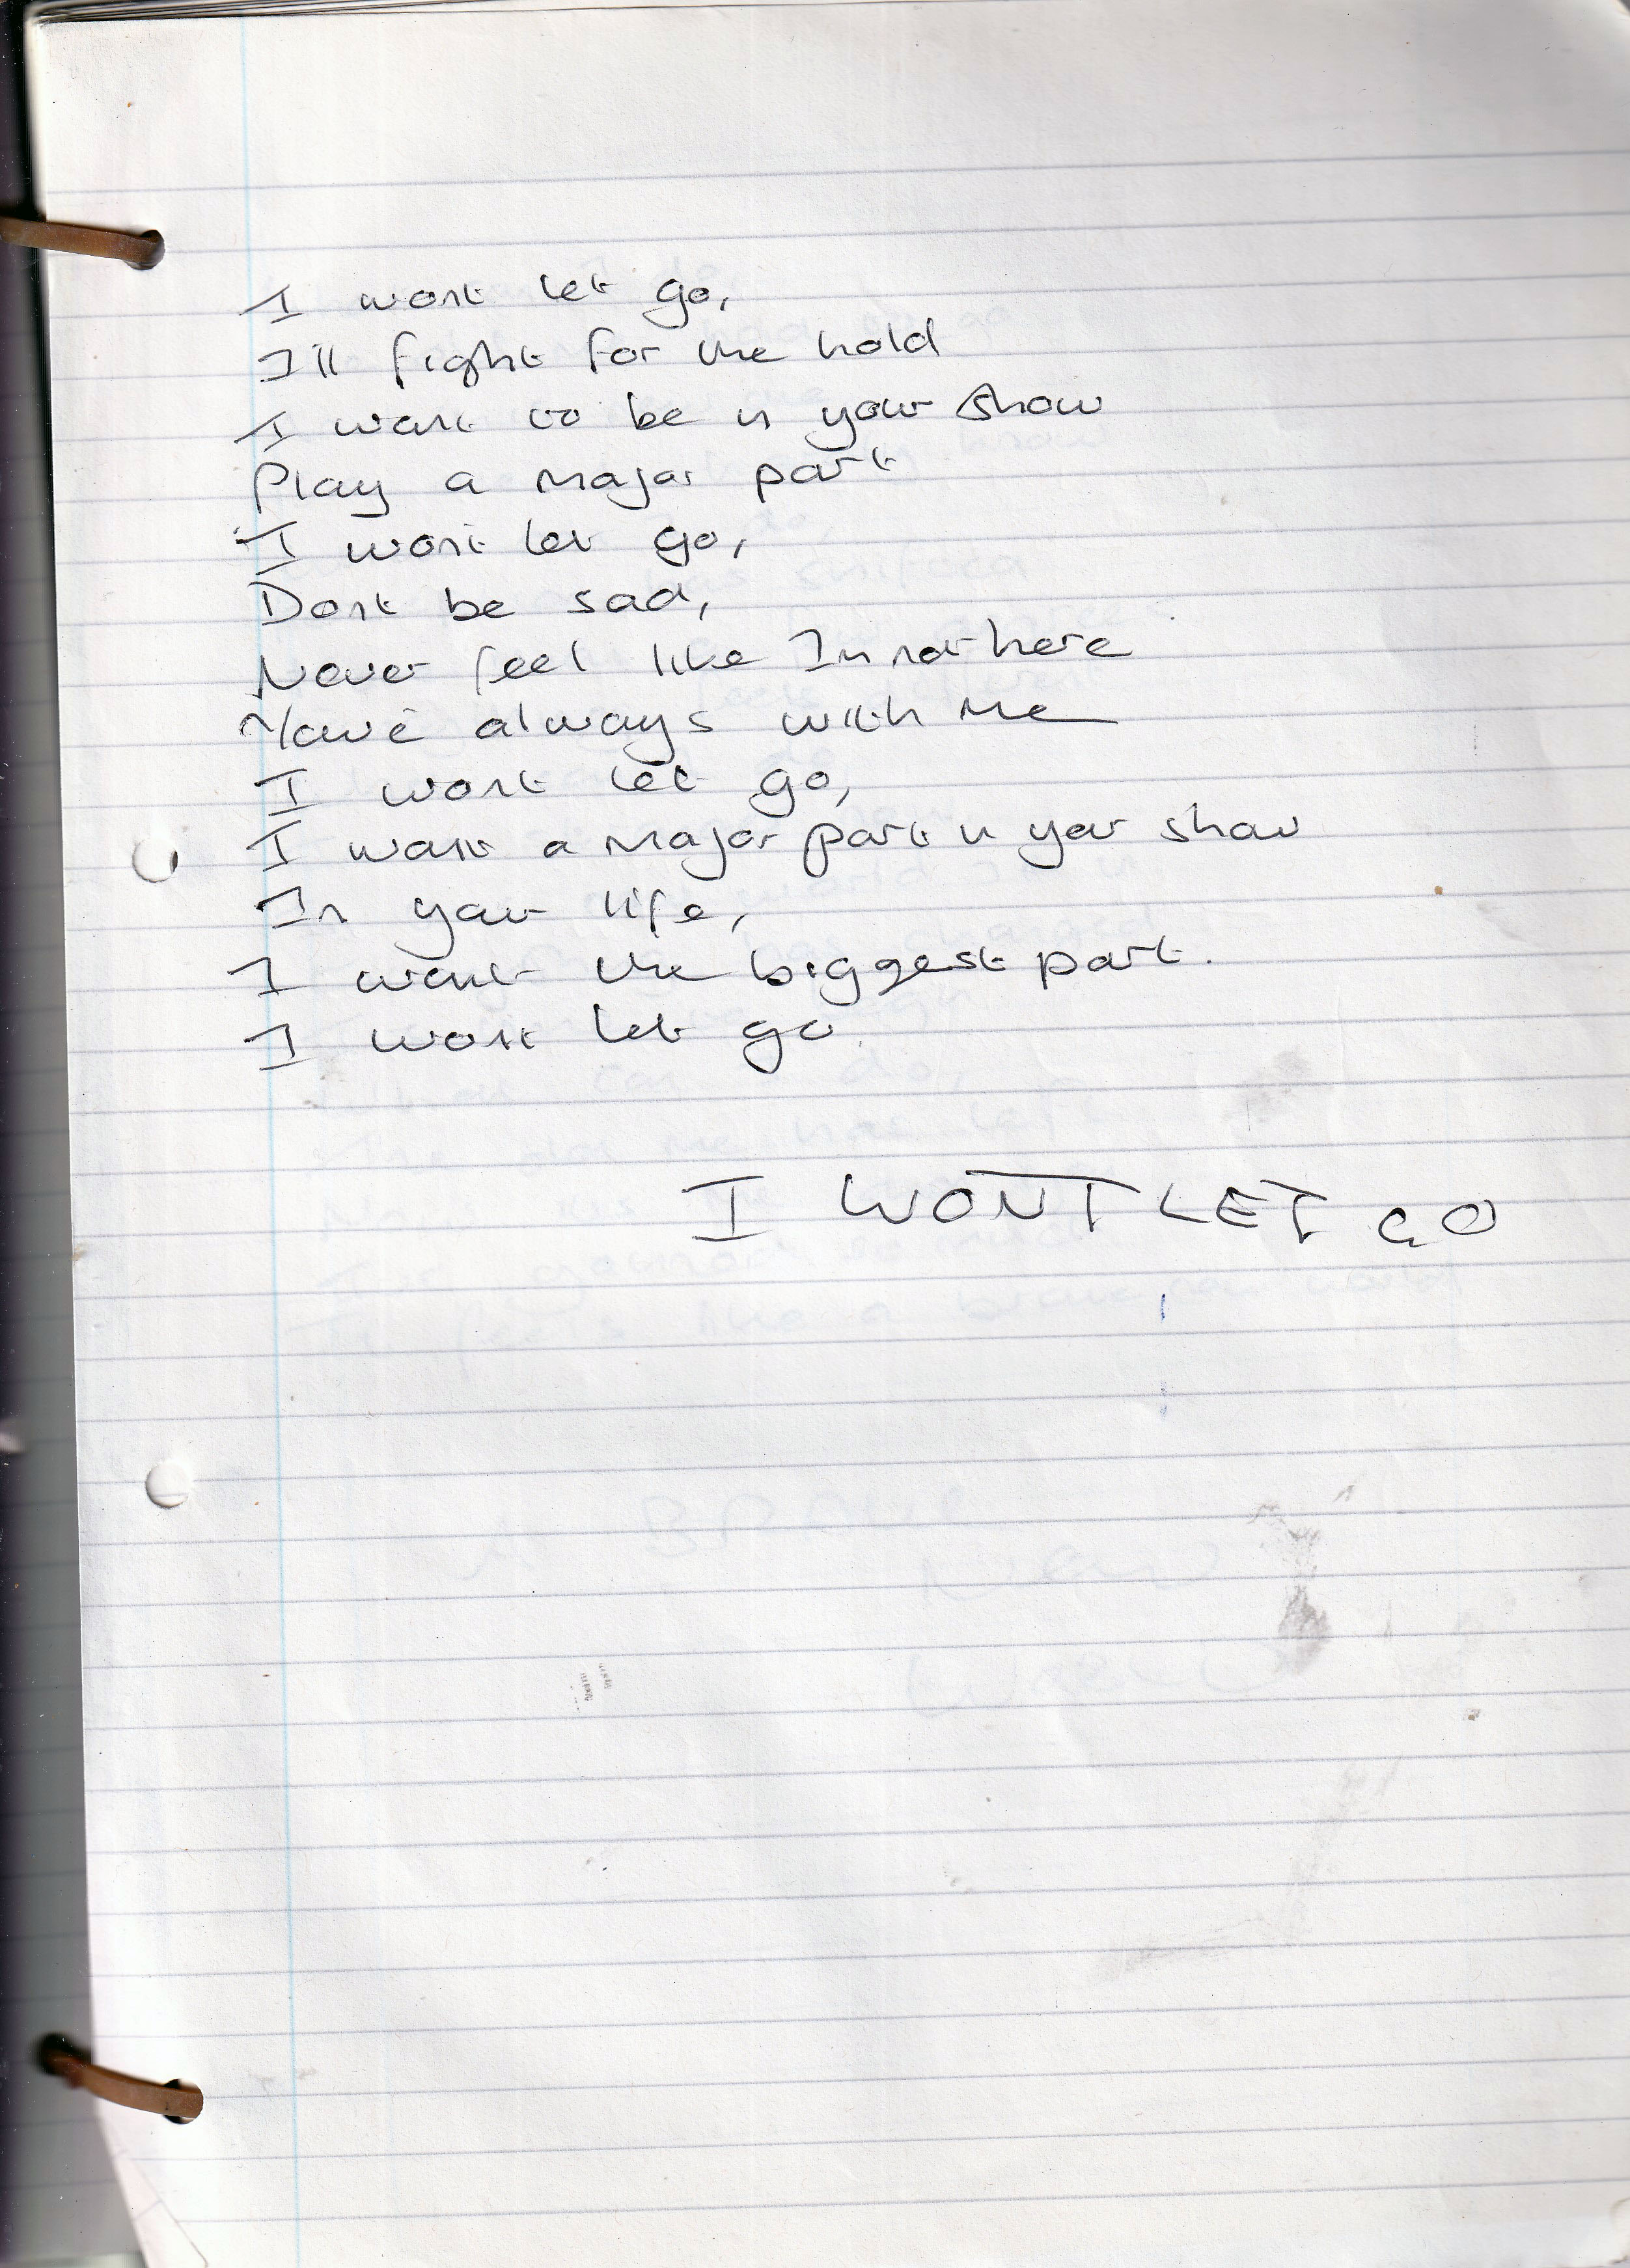 I wont let go,
I'll fight for the hold
I want to be in your show
Play a major part
I wont let go,
Dont be sad,
Never feel like Im not here
Your'e always with me
I wont let go,
I want a major part in your show
In your life,
I want the biggest part.
I wont let go.
I WONT LET GO